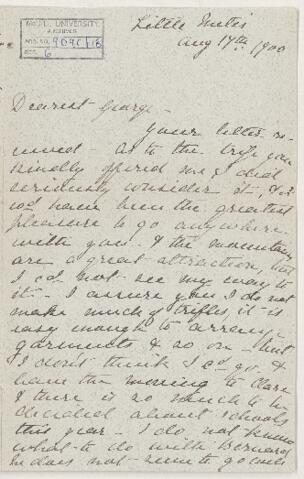 McGILL UNIVERSITY
ARCHIVES
ACC. NO. 9090/13
REF. 6
Little Metis
Aug 17th 1900
Dearest George -
Your letter re-
ceived - as to the trip you
kindly offered me I did
seriously consider it, & it
wd have been the greatest
pleasure to go anywhere
with you - & the mountains
are a great attraction, but
I cd not see my way to
it - I assure you I do not
make much of trifles, it is
easy enough to arrange
garments & so on - but
I don't think I cd go &
leave the moving to Clare
& there is so much to be
decided about schools
this year - I do not know
what to do with Bernard
he does not seem to go well